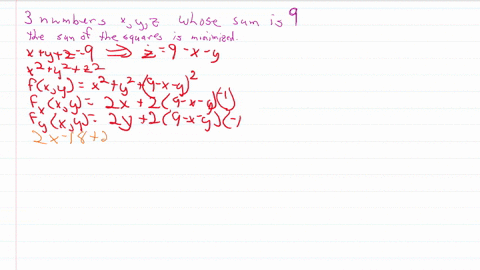 3 numbers x, y, z whose sum is 9
the sum of the squares is minimized.
x+y+z=9 ⟹ z=9-x-y
x²+y²+z²
f(x,y)= x²+y²+(9-x-y)²
Fx(x,y)= 2x+2(9-x-y)(-1)
Fy(x,y)= 2y+2(9-x-y)(-1)
2x-18+2